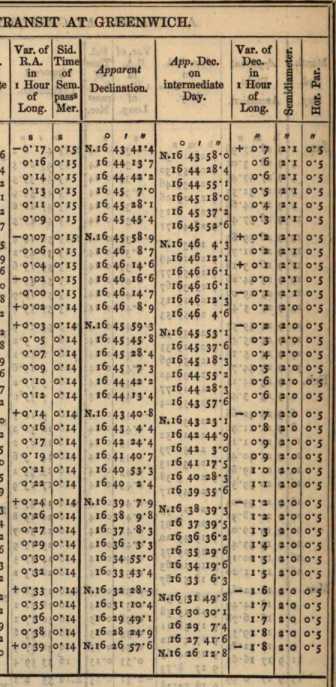 TRANSIT AT GREENWICH.
Var. of R.A. in 1 Hour of Long. | Sid. Time of Sem. pass^g Mer. | Apparent Declination. | App. Dec. on intermediate Day. | Var. of Dec. in 1 Hour of Long. | Semidiameter. | Hor. Par.
s s ° ′ ″ ° ′ ″ ″ ″ ″
−0·17 0·15 N.16 43 41·4 N.16 43 58·0 +0·7 2·1 0·5
0·16 0·15 16 44 13·7 16 44 28·4 0·6 2·1 0·5
0·14 0·15 16 44 42·2 16 44 55·1 0·6 2·1 0·5
0·13 0·15 16 45 7·0 16 45 18·0 0·5 2·1 0·5
0·11 0·15 16 45 28·1 16 45 37·2 0·4 2·1 0·5
0·09 0·15 16 45 45·4 16 45 52·6 0·3 2·1 0·5
−0·07 0·15 N.16 45 58·9 N.16 46 4·3 +0·2 2·1 0·5
0·06 0·15 16 46 8·7 16 46 12·1 0·2 2·1 0·5
0·04 0·15 16 46 14·6 16 46 16·1 +0·1 2·1 0·5
−0·02 0·15 16 46 16·6 16 46 16·1 0·0 2·1 0·5
0·00 0·15 16 46 14·7 16 46 12·3 −0·1 2·1 0·5
+0·02 0·14 16 46 8·9 16 46 4·6 0·2 2·0 0·5
+0·03 0·14 N.16 45 59·3 N.16 45 53·1 −0·2 2·0 0·5
0·05 0·14 16 45 45·8 16 45 37·6 0·3 2·0 0·5
0·07 0·14 16 45 28·4 16 45 18·3 0·4 2·0 0·5
0·09 0·14 16 45 7·3 16 44 55·2 0·5 2·0 0·5
0·10 0·14 16 44 42·2 16 44 28·3 0·6 2·0 0·5
0·12 0·14 16 44 13·4 16 43 57·6 0·6 2·0 0·5
+0·14 0·14 N.16 43 40·8 N.16 43 23·1 −0·7 2·0 0·5
0·16 0·14 16 43 4·4 16 42 44·9 0·8 2·0 0·5
0·17 0·14 16 42 24·4 16 42 3·0 0·9 2·0 0·5
0·19 0·14 16 41 40·7 16 41 17·5 0·9 2·0 0·5
0·21 0·14 16 40 53·3 16 40 28·3 1·0 2·0 0·5
0·22 0·14 16 40 2·4 16 39 35·6 1·1 2·0 0·5
+0·24 0·14 N.16 39 7·9 N.16 38 39·3 −1·2 2·0 0·5
0·26 0·14 16 38 9·8 16 37 39·5 1·2 2·0 0·5
0·27 0·14 16 37 8·3 16 36 36·2 1·3 2·0 0·5
0·29 0·14 16 36 3·3 16 35 29·6 1·4 2·0 0·5
0·30 0·14 16 34 55·0 16 34 19·6 1·5 2·0 0·5
0·32 0·14 16 33 43·4 16 33 6·3 1·5 2·0 0·5
+0·33 0·14 N.16 32 28·5 N.16 31 49·8 −1·6 2·0 0·5
0·35 0·14 16 31 10·4 16 30 30·1 1·7 2·0 0·5
0·36 0·14 16 29 49·1 16 29 7·4 1·7 2·0 0·5
0·38 0·14 16 28 24·9 16 27 41·6 1·8 2·0 0·5
+0·39 0·14 N.16 26 57·6 N.16 26 12·8 −1·8 2·0 0·5